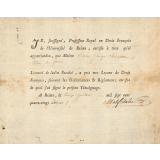 JE, soussigné, Professeur Royal en Droit François
de l'Université de Reims, certifie à tous qu'il
appartiendra, que Maître
Licencié de ladite Faculté, a pris mes Leçons de Droit
François, suivant les Ordonnances & Réglemens; en foi
de quoi j'ai signé le présent Témoignage.
A Reims, ce mil sept cent
quatre-vingt